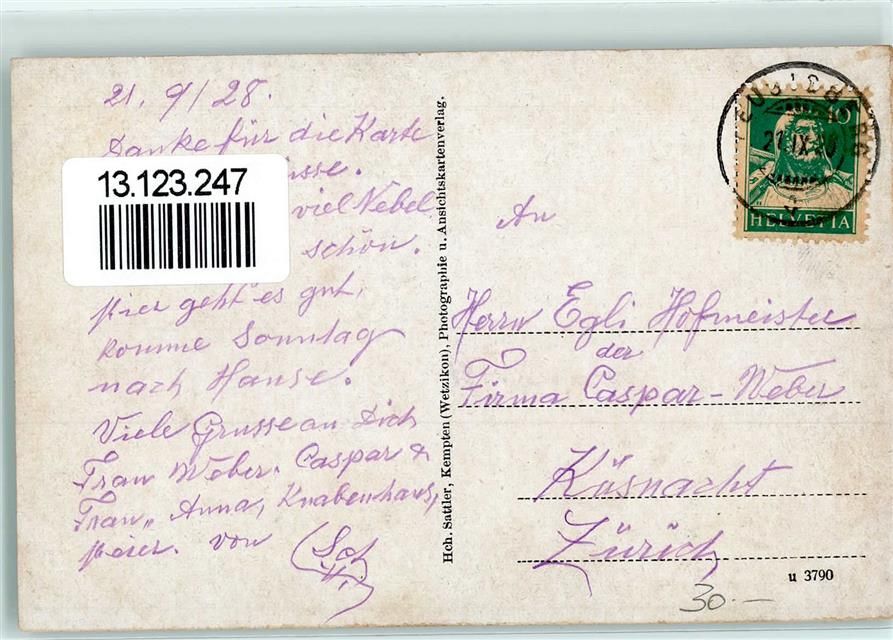 21. 9/28.
Danke für die Karte
13.123.247
viel Nebel
schön.
Hier geht es gut,
komme Sonntag
nach Hause.
Viele Grusse an Dich
Frau Weber. Caspar &
Frau „ Anna, Knabenhans,
von
Hch. Sattler, Kempten (Wetzikon), Photographie u. Ansichtskartenverlag.
21.IX.
10
HELVETIA
An
Herrn Egli Hofmeister
der
Firma Caspar-Weber
Küsnacht
Zürich
u 3790
30.—